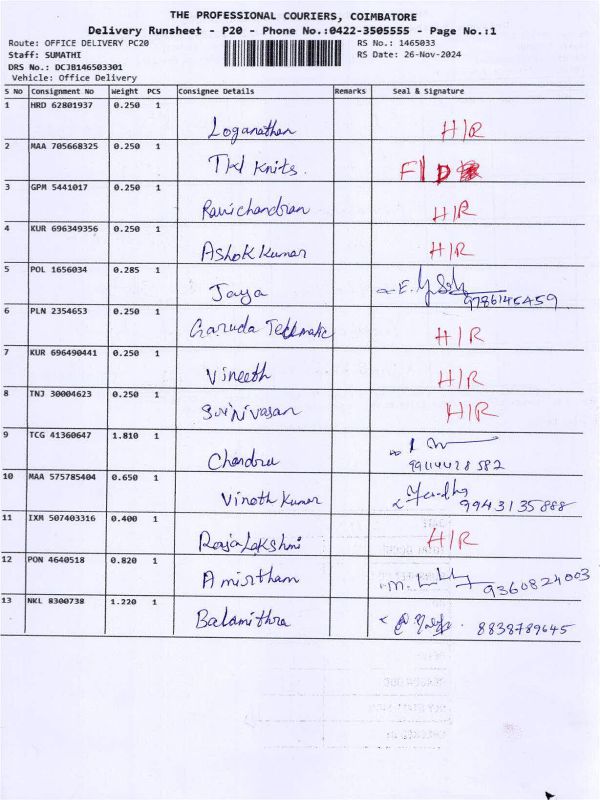 THE PROFESSIONAL COURIERS, COIMBATORE
Delivery Runsheet - P20 - Phone No.:0422-3505555 - Page No.:1
Route: OFFICE DELIVERY PC20 RS No.: 1465033
Staff: SUMATHI RS Date: 26-Nov-2024
DRS No.: DCJB146503301
Vehicle: Office Delivery
S No Consignment No Weight PCS Consignee Details Remarks Seal & Signature
1 HRD 62801937 0.250 1
Loganathan H/R
2 MAA 705668325 0.250 1
TKI Knits. F/D
3 GPM 5441017 0.250 1
Ravichandran H/R
4 KUR 696349356 0.250 1
Ashok Kumar H/R
5 POL 1656034 0.285 1
Jaya 9786145459
6 PLN 2354653 0.250 1
Garuda H/R
7 KUR 696490441 0.250 1
Vineeth H/R
8 TNJ 30004623 0.250 1
Srinivasan H/R
9 TCG 41360647 1.810 1
Chandru
10 MAA 575785404 0.650 1
Vinoth Kumar 9943135888
11 IXM 507403316 0.400 1
Rajalakshmi H/R
12 PON 4640518 0.820 1
Amirtham 9360824003
13 NKL 8300738 1.220 1
Balamithra 8838789645